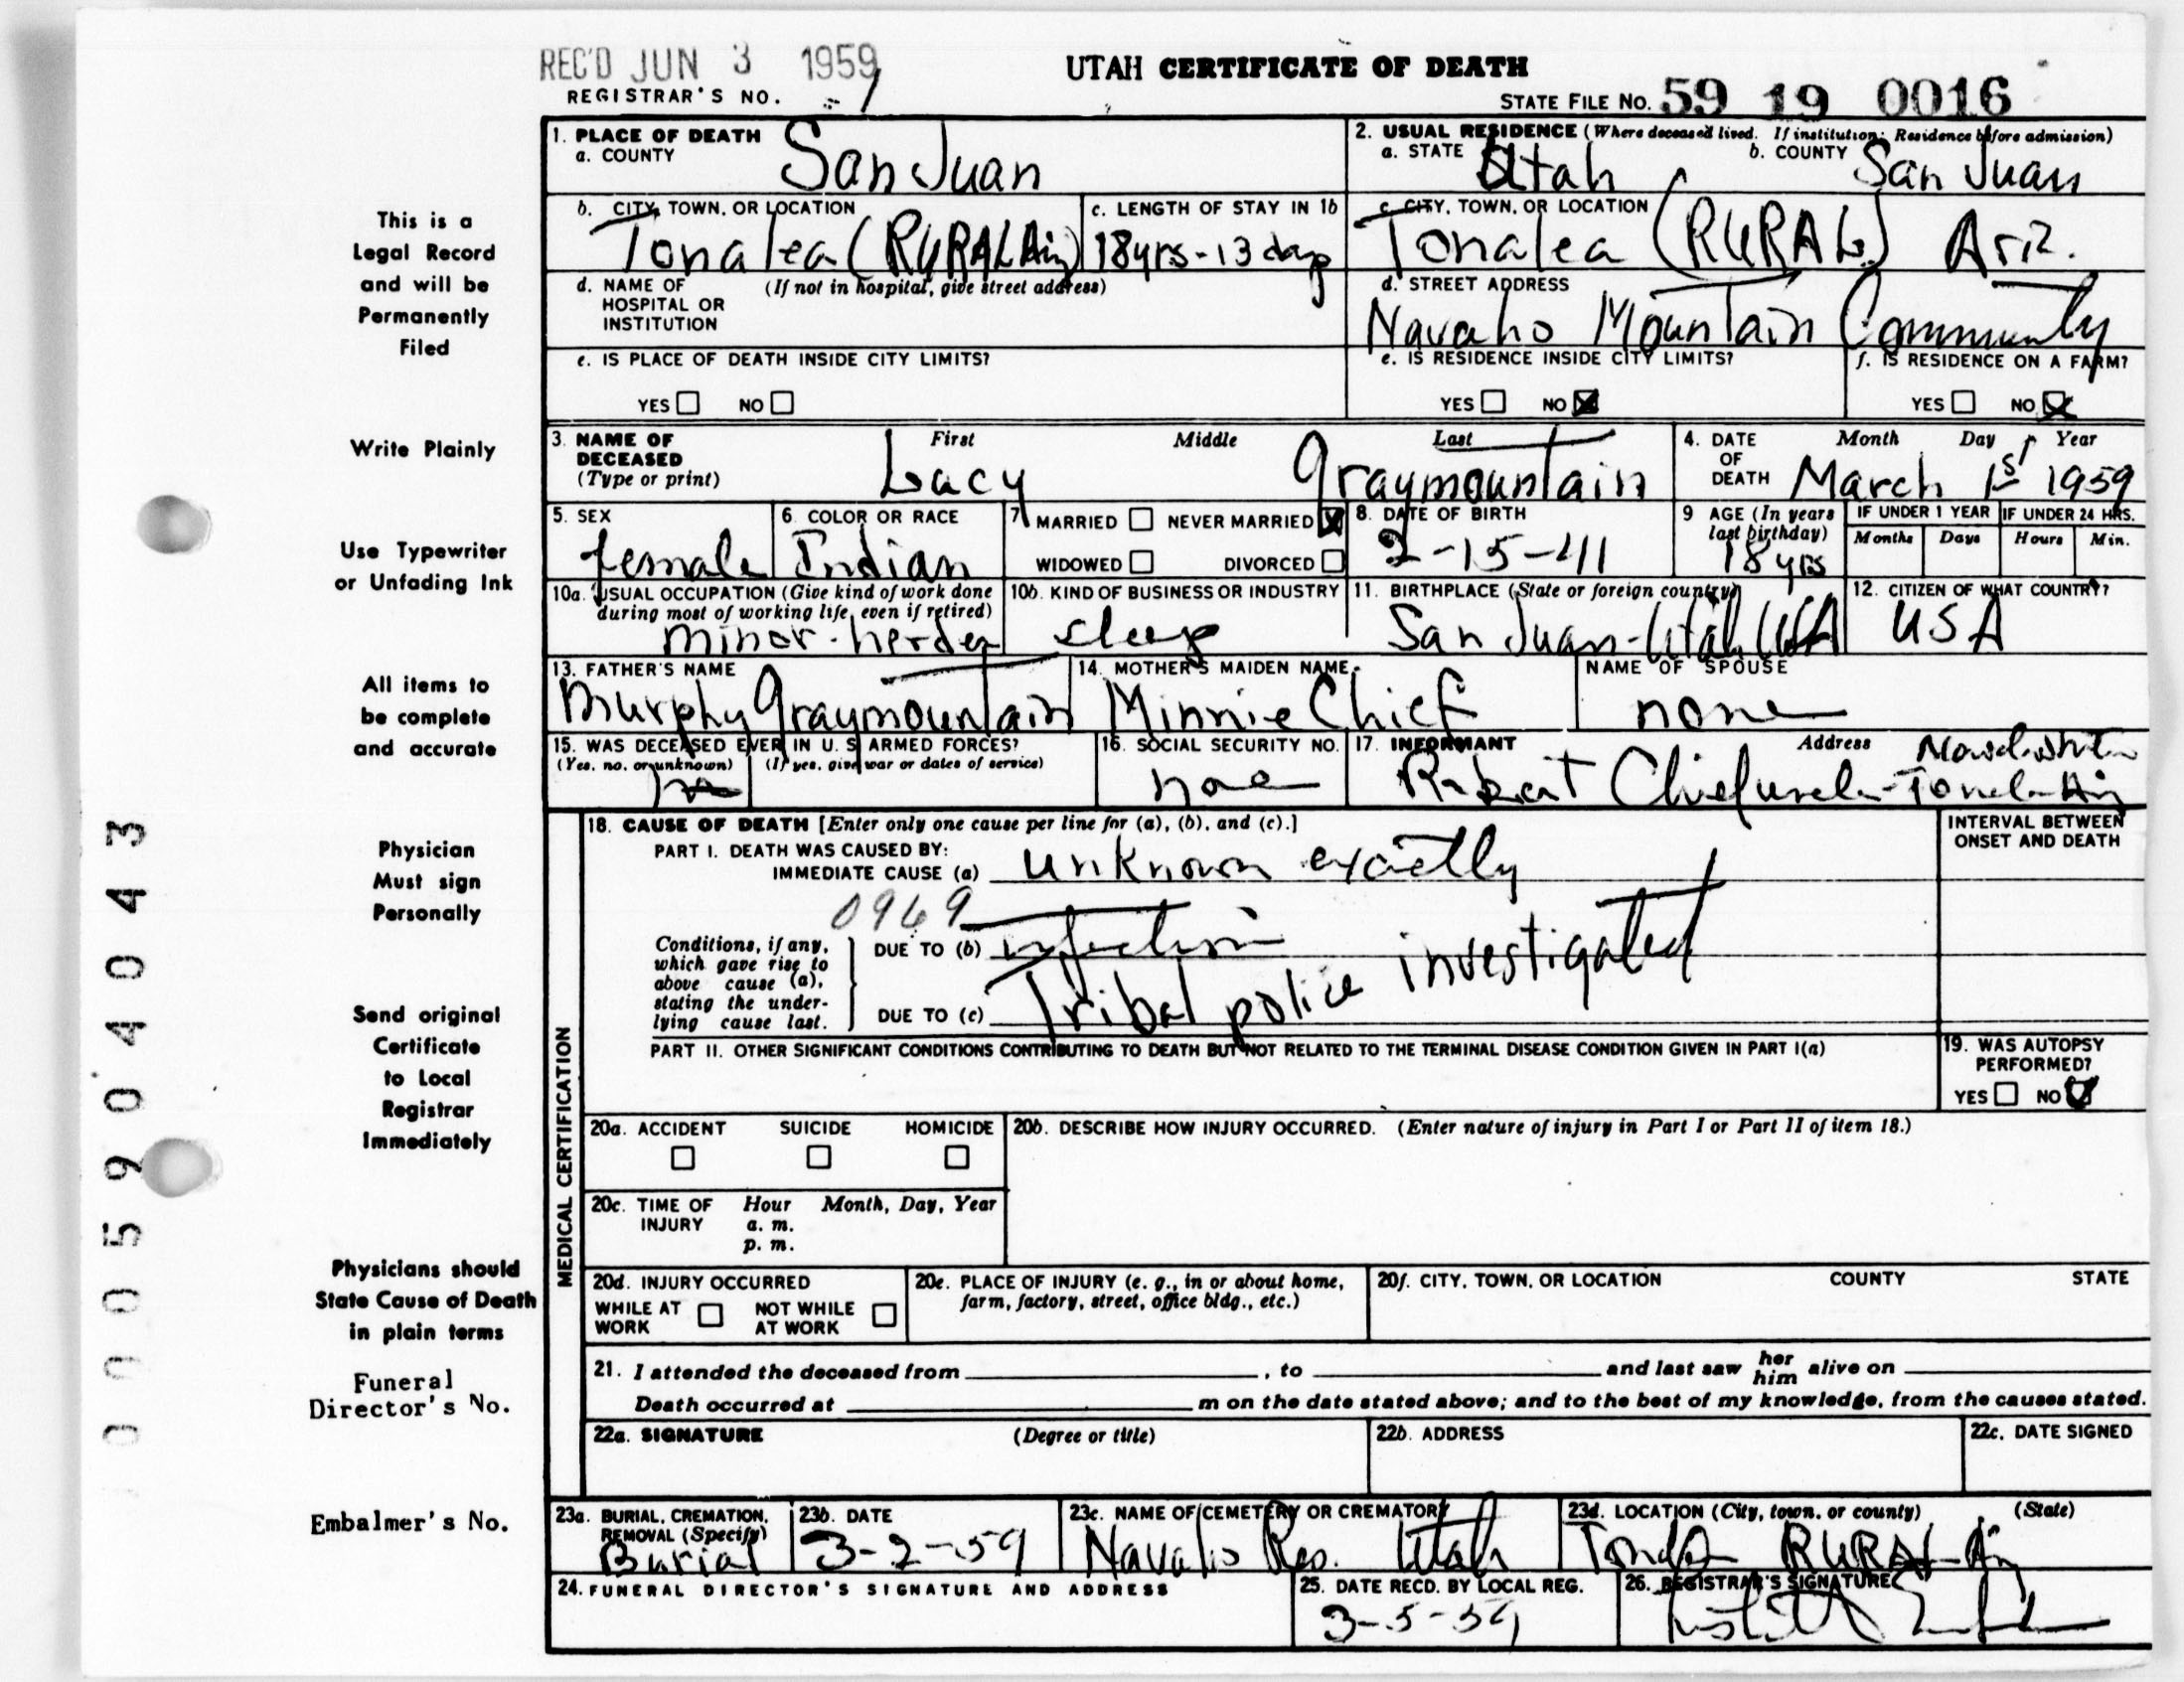 REC'D JUN 3 1959
REGISTRAR'S NO. 1
UTAH CERTIFICATE OF DEATH
STATE FILE NO. 59 19 0016
This is a
Legal Record
and will be
Permanently
Filed
Write Plainly
Use Typewriter
or Unfading Ink
All items to
be complete
and accurate
Physician
Must sign
Personally
Send original
Certificate
to Local
Registrar
Immediately
Physicians should
State Cause of Death
in plain terms
Funeral
Director's No.
Embalmer's No.
0005904043
1. PLACE OF DEATH
a. COUNTY San Juan
2. USUAL RESIDENCE (Where deceased lived. If institution: Residence before admission)
a. STATE Utah b. COUNTY San Juan
b. CITY, TOWN, OR LOCATION
Tonalea (RURAL Ariz)
c. LENGTH OF STAY IN 1b
18yrs - 13 days
c. CITY, TOWN, OR LOCATION
Tonalea (RURAL) Ariz.
d. NAME OF HOSPITAL OR INSTITUTION (If not in hospital, give street address)
d. STREET ADDRESS
Navaho Mountain Community
e. IS PLACE OF DEATH INSIDE CITY LIMITS?
YES NO
e. IS RESIDENCE INSIDE CITY LIMITS?
YES NO X
f. IS RESIDENCE ON A FARM?
YES NO X
3. NAME OF DECEASED (Type or print)
First Middle Last
Lacy Graymountain
4. DATE OF DEATH Month Day Year
March 1st 1959
5. SEX
female
6. COLOR OR RACE
Indian
7. MARRIED NEVER MARRIED X
WIDOWED DIVORCED
8. DATE OF BIRTH
2-15-41
9 AGE (In years last birthday)
18 yrs
IF UNDER 1 YEAR
Months Days
IF UNDER 24 HRS.
Hours Min.
10a. USUAL OCCUPATION (Give kind of work done during most of working life, even if retired)
minor-herder
10b. KIND OF BUSINESS OR INDUSTRY
sheep
11. BIRTHPLACE (State or foreign country)
San Juan-Utah USA
12. CITIZEN OF WHAT COUNTRY?
USA
13. FATHER'S NAME
Murphy Graymountain
14. MOTHER'S MAIDEN NAME
Minnie Chief
NAME OF SPOUSE
none
15. WAS DECEASED EVER IN U. S. ARMED FORCES?
(Yes, no, or unknown) (If yes, give war or dates of service)
no
16. SOCIAL SECURITY NO.
none
17. INFORMANT Address
Robert
18. CAUSE OF DEATH [Enter only one cause per line for (a), (b), and (c).]
PART I. DEATH WAS CAUSED BY:
IMMEDIATE CAUSE (a) unknown exactly
0969
Conditions, if any, which gave rise to above cause (a), stating the underlying cause last.
DUE TO (b) infection
Tribal police investigated
DUE TO (c)
INTERVAL BETWEEN ONSET AND DEATH
PART II. OTHER SIGNIFICANT CONDITIONS CONTRIBUTING TO DEATH BUT NOT RELATED TO THE TERMINAL DISEASE CONDITION GIVEN IN PART I(a)
19. WAS AUTOPSY PERFORMED?
YES NO
MEDICAL CERTIFICATION
20a. ACCIDENT SUICIDE HOMICIDE
20b. DESCRIBE HOW INJURY OCCURRED. (Enter nature of injury in Part I or Part II of item 18.)
20c. TIME OF INJURY Hour Month, Day, Year
a. m.
p. m.
20d. INJURY OCCURRED
WHILE AT WORK NOT WHILE AT WORK
20e. PLACE OF INJURY (e. g., in or about home, farm, factory, street, office bldg., etc.)
20f. CITY, TOWN, OR LOCATION COUNTY STATE
21. I attended the deceased from , to and last saw her him alive on
Death occurred at m on the date stated above; and to the best of my knowledge, from the causes stated.
22a. SIGNATURE (Degree or title)
22b. ADDRESS
22c. DATE SIGNED
23a. BURIAL, CREMATION, REMOVAL (Specify)
Burial
23b. DATE
3-2-59
23c. NAME OF CEMETERY OR CREMATORY
Navaho Res. Utah
23d. LOCATION (City, town, or county) (State)
RURAL
24. FUNERAL DIRECTOR'S SIGNATURE AND ADDRESS
25. DATE RECD. BY LOCAL REG.
3-5-59
26. REGISTRAR'S SIGNATURE